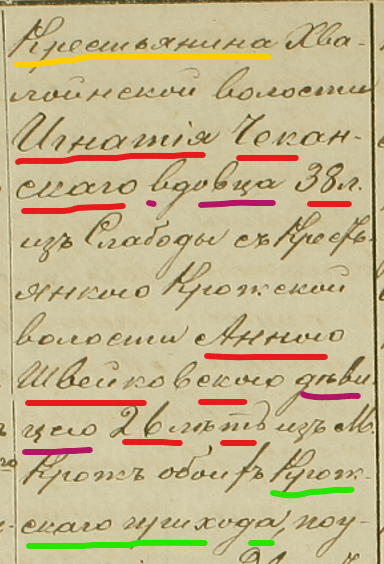 Крестьянина Хва-
лойнской волости
Игнатія Чекан-
скаго вдовца 38 л.
изъ Слабоды съ Кресть-
янкою Крожской
волости Анною
Швейковскою дѣви-
цею 26 лѣтъ изъ М.
Крожъ обоихъ Крож-
скаго прихода, поу-